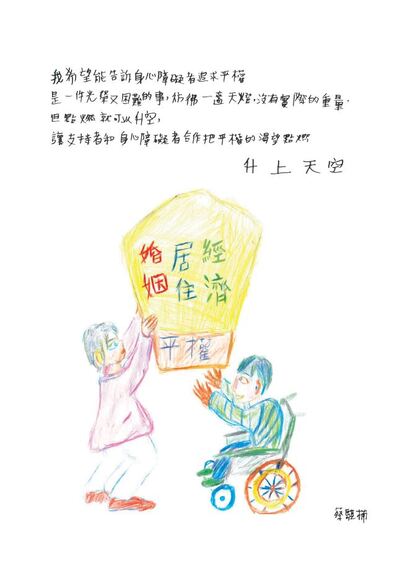 我希望能告訴身心障礙者追求平權
是一件光榮又困難的事,彷彿一盞天燈,沒有實際的重量.
但點燃就可以升空,
讓支持者和身心障礙者合作把平權的渴望點燃
升上天空
婚姻 居住 經濟
平權